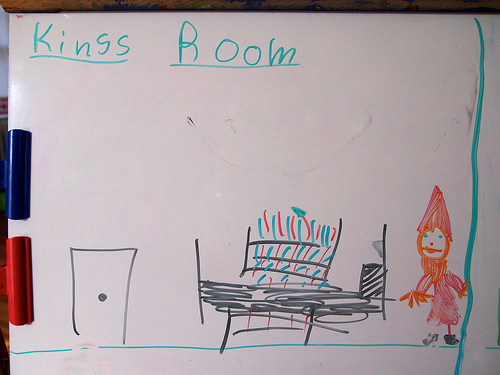 Kings Room